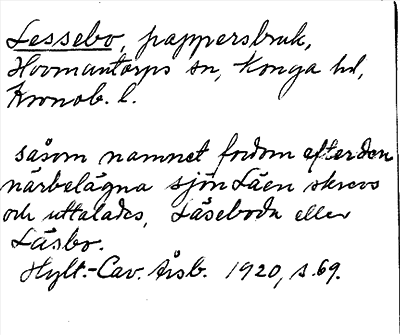 Lessebo, pappersbruk,
Hovmantorps sn, Konga hd,
Kronob. l.
såsom namnet fordom efter den
närbelägna sjön Läen skrevs
och uttalades, Läseboda eller
Läsbo.
Hylt.-Cav. Årsb. 1920, s. 69.